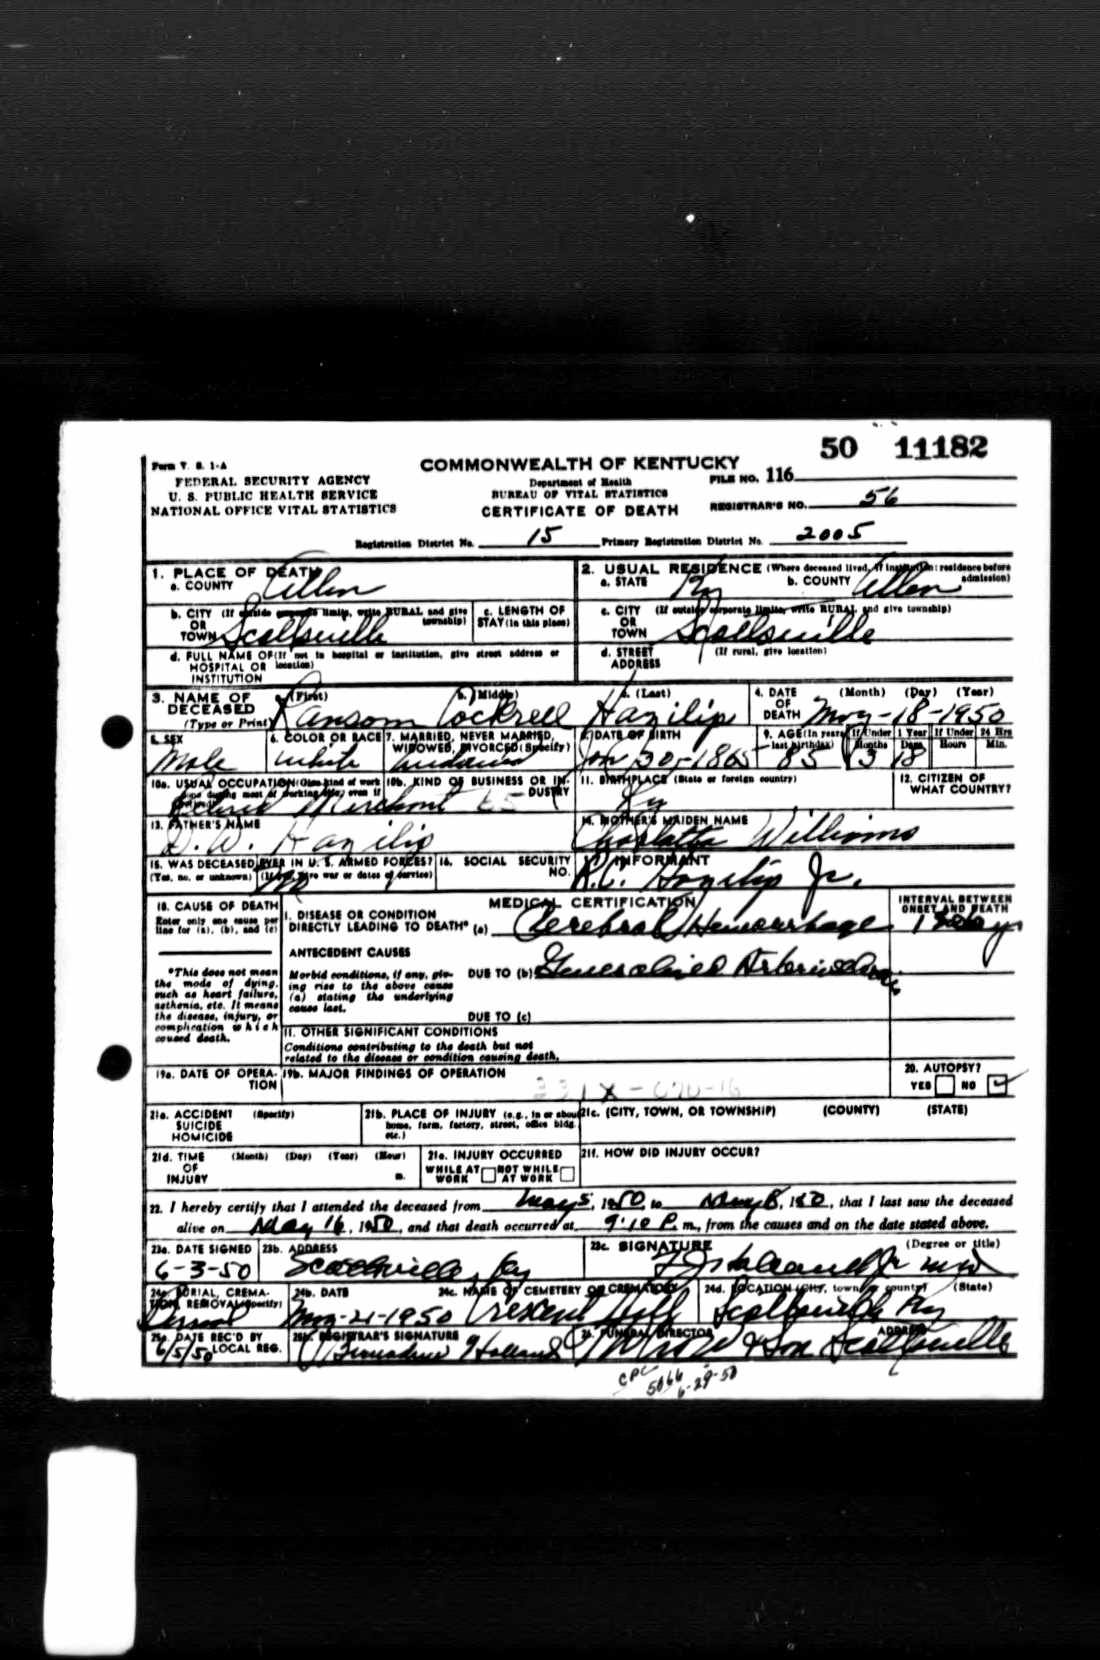 50 11182
Form V. S. 1-A
COMMONWEALTH OF KENTUCKY
FEDERAL SECURITY AGENCY
Department of Health
FILE NO. 116
U. S. PUBLIC HEALTH SERVICE
BUREAU OF VITAL STATISTICS
NATIONAL OFFICE VITAL STATISTICS
CERTIFICATE OF DEATH
REGISTRAR'S NO. 56
Registration District No. 15 Primary Registration District No. 2005
1. PLACE OF DEATH
a. COUNTY Allen
2. USUAL RESIDENCE (Where deceased lived. If institution: residence before admission)
a. STATE Ky b. COUNTY Allen
b. CITY (If outside corporate limits, write RURAL and give township)
OR
TOWN Scottsville
c. LENGTH OF
STAY (in this place)
c. CITY (If outside corporate limits, write RURAL and give township)
OR
TOWN Scottsville
d. FULL NAME OF (If not in hospital or institution, give street address or location)
HOSPITAL OR
INSTITUTION
d. STREET (If rural, give location)
ADDRESS
3. NAME OF DECEASED
(Type or Print)
a. (First) b. (Middle) c. (Last)
Ransom Cockrell Hazilip
4. DATE OF DEATH (Month) (Day) (Year)
May-18-1950
5. SEX
Male
6. COLOR OR RACE
White
7. MARRIED, NEVER MARRIED, WIDOWED, DIVORCED (Specify)
Widowed
8. DATE OF BIRTH
Jan 30-1865
9. AGE (In years last birthday) If Under 1 Year Months Days If Under 24 Hrs Hours Min.
85 3 18
10a. USUAL OCCUPATION (Give kind of work done during most of working life, even if retired)
Retired Merchant
10b. KIND OF BUSINESS OR INDUSTRY
65
11. BIRTHPLACE (State or foreign country)
Ky
12. CITIZEN OF WHAT COUNTRY?
13. FATHER'S NAME
D. W. Hazilip
14. MOTHER'S MAIDEN NAME
Charlotta Williams
15. WAS DECEASED EVER IN U. S. ARMED FORCES?
(Yes, no, or unknown) (If yes, give war or dates of service)
No
16. SOCIAL SECURITY NO.
17. INFORMANT
R.C. Hazilip Jr.
18. CAUSE OF DEATH
Enter only one cause per line for (a), (b), and (c)
MEDICAL CERTIFICATION
INTERVAL BETWEEN ONSET AND DEATH
I. DISEASE OR CONDITION
DIRECTLY LEADING TO DEATH* (a) Cerebral Hemorrhage
ANTECEDENT CAUSES
*This does not mean the mode of dying, such as heart failure, asthenia, etc. It means the disease, injury, or complication which caused death.
Morbid conditions, if any, giving rise to the above cause (a) stating the underlying cause last.
DUE TO (b) Generalized
DUE TO (c)
II. OTHER SIGNIFICANT CONDITIONS
Conditions contributing to the death but not related to the disease or condition causing death.
19a. DATE OF OPERATION
19b. MAJOR FINDINGS OF OPERATION
20. AUTOPSY?
YES NO ✓
21a. ACCIDENT (Specify)
SUICIDE
HOMICIDE
21b. PLACE OF INJURY (e.g., in or about home, farm, factory, street, office bldg. etc.)
21c. (CITY, TOWN, OR TOWNSHIP) (COUNTY) (STATE)
21d. TIME OF INJURY (Month) (Day) (Year) (Hour) m.
21e. INJURY OCCURRED
WHILE AT WORK NOT WHILE AT WORK
21f. HOW DID INJURY OCCUR?
22. I hereby certify that I attended the deceased from May 5, 1950, to May 8, 1950, that I last saw the deceased
alive on May 16, 1950, and that death occurred at 9:10 P. m., from the causes and on the date stated above.
23a. DATE SIGNED
6-3-50
23b. ADDRESS
Scottsville, Ky
23c. SIGNATURE (Degree or title)
24a. BURIAL, CREMATION, REMOVAL (Specify)
Burial
24b. DATE
May-21-1950
24c. NAME OF CEMETERY OR CREMATORY
Crescent Hill
24d. LOCATION (City, town, or county) (State)
Scottsville Ky
25a. DATE REC'D BY LOCAL REG.
6/5/50
25b. REGISTRAR'S SIGNATURE
Bernadine Holland
26. FUNERAL DIRECTOR ADDRESS
& Son Scottsville
CPC
5066
6-29-50